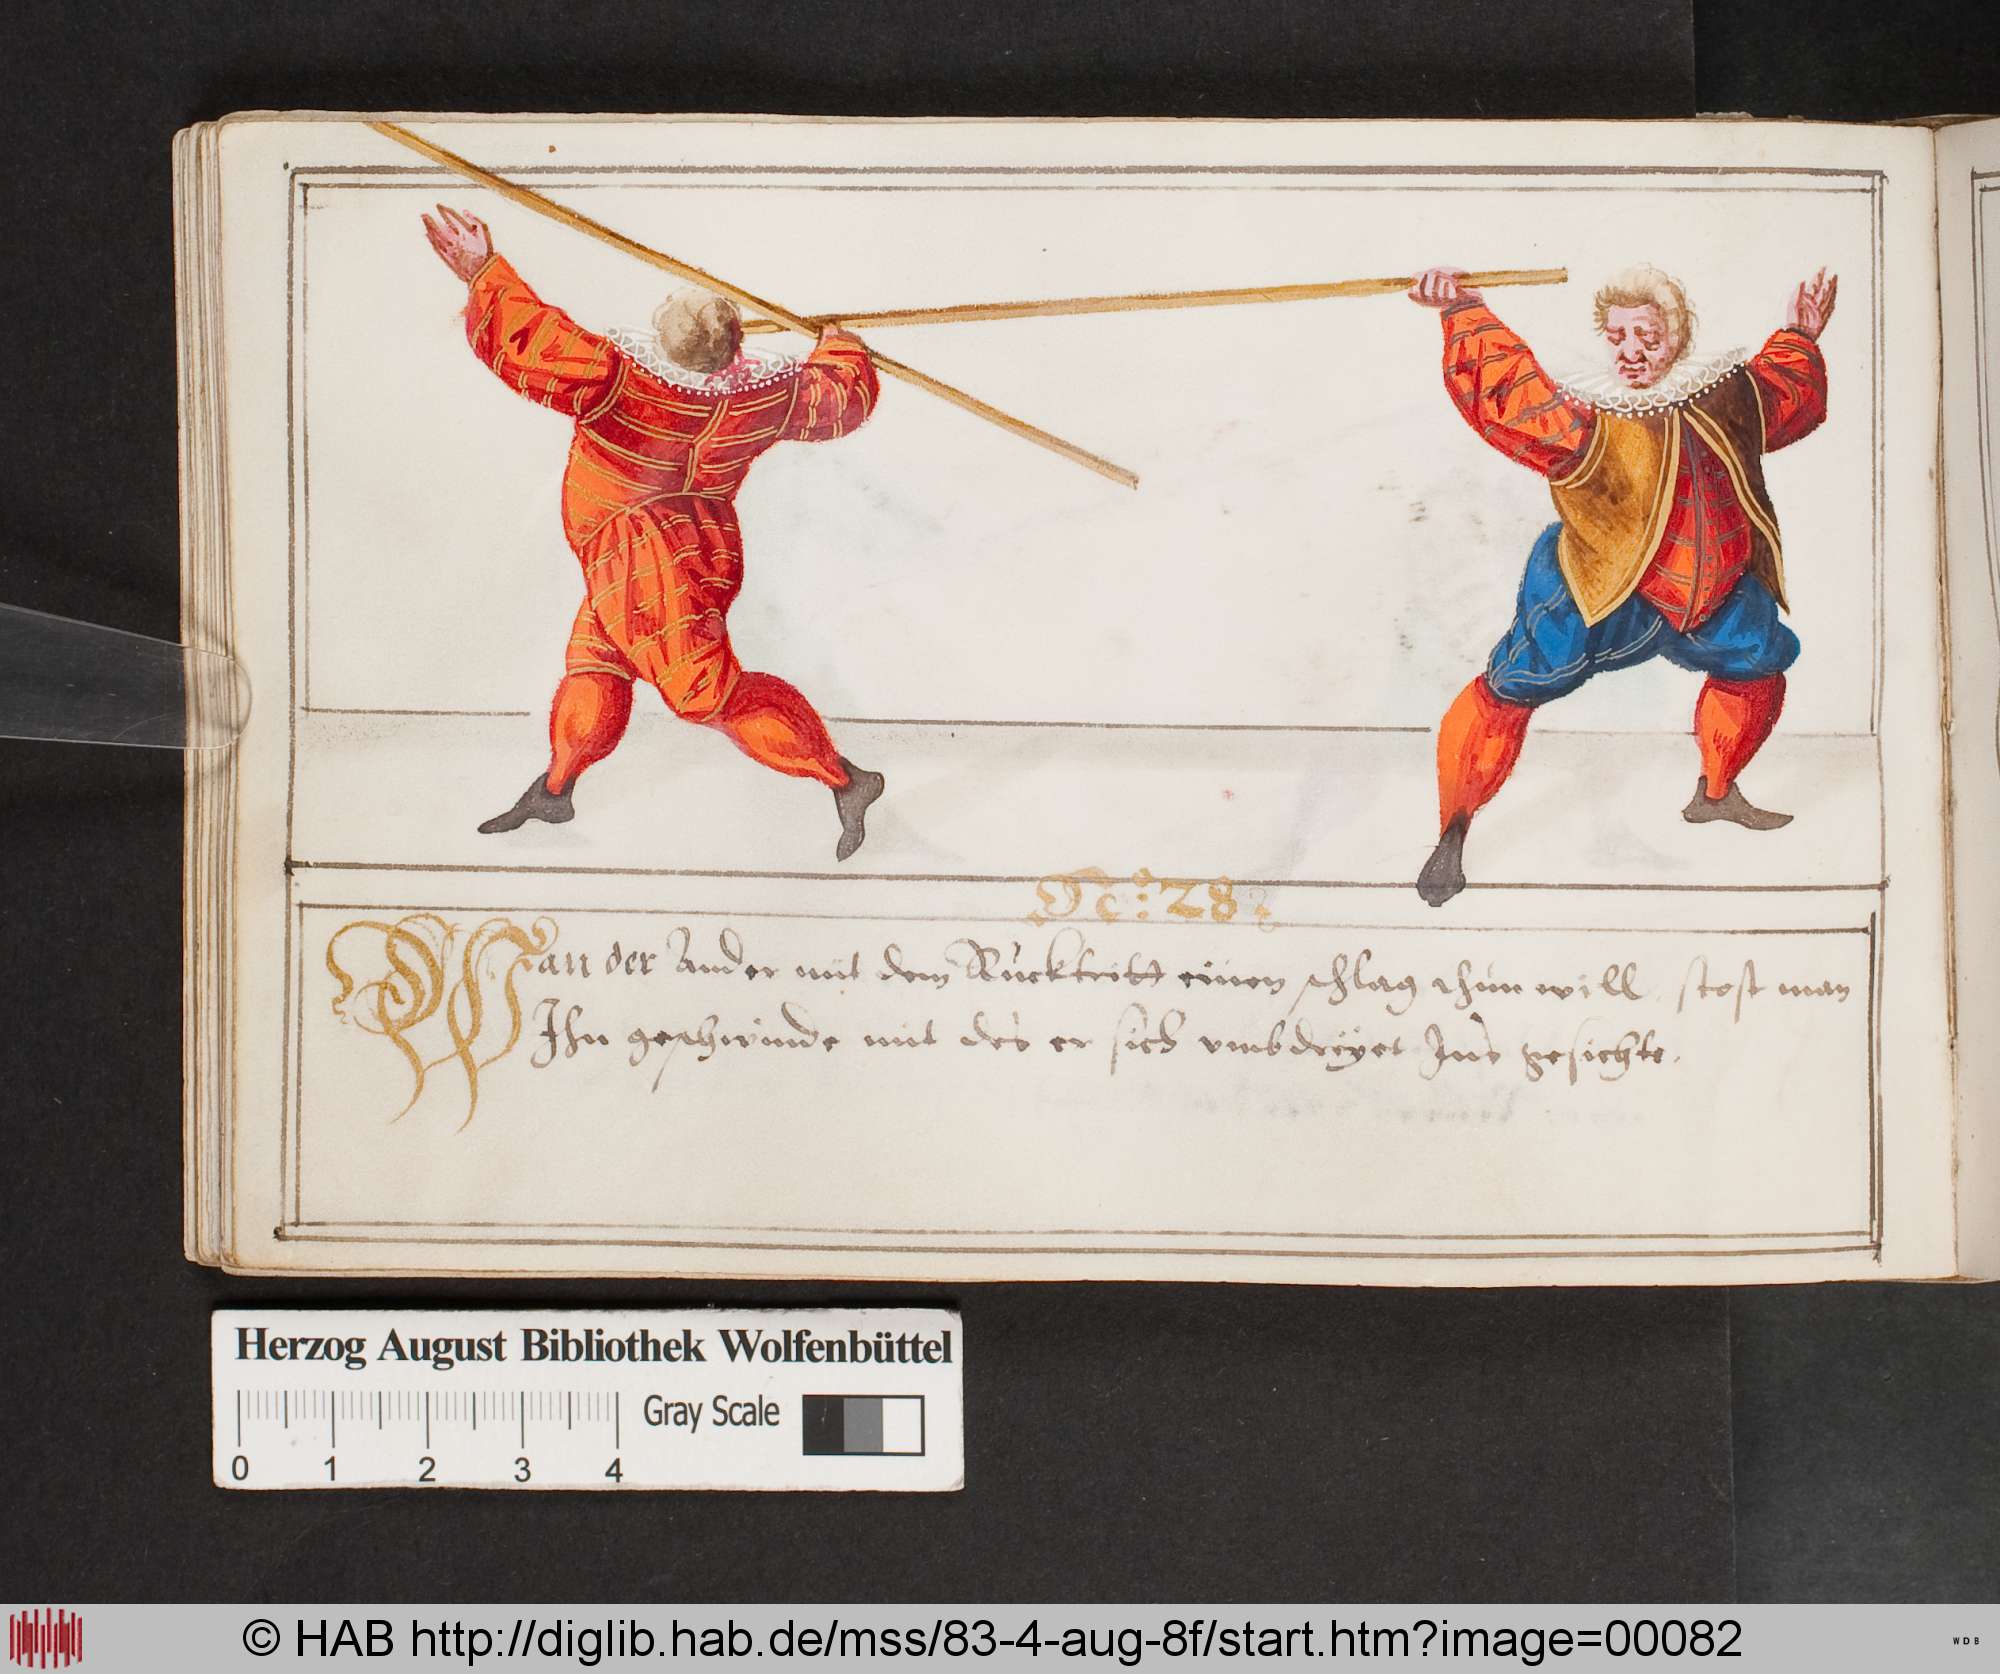 N: 28.
Wan der Ander mit dem Rucktritt einen schlag thun will stost man
Ihn geschwinde mit des er sich umbdreÿet Ins gesichte.
Herzog August Bibliothek Wolfenbüttel
Gray Scale
0 1 2 3 4
© HAB http://diglib.hab.de/mss/83-4-aug-8f/start.htm?image=00082
WDB